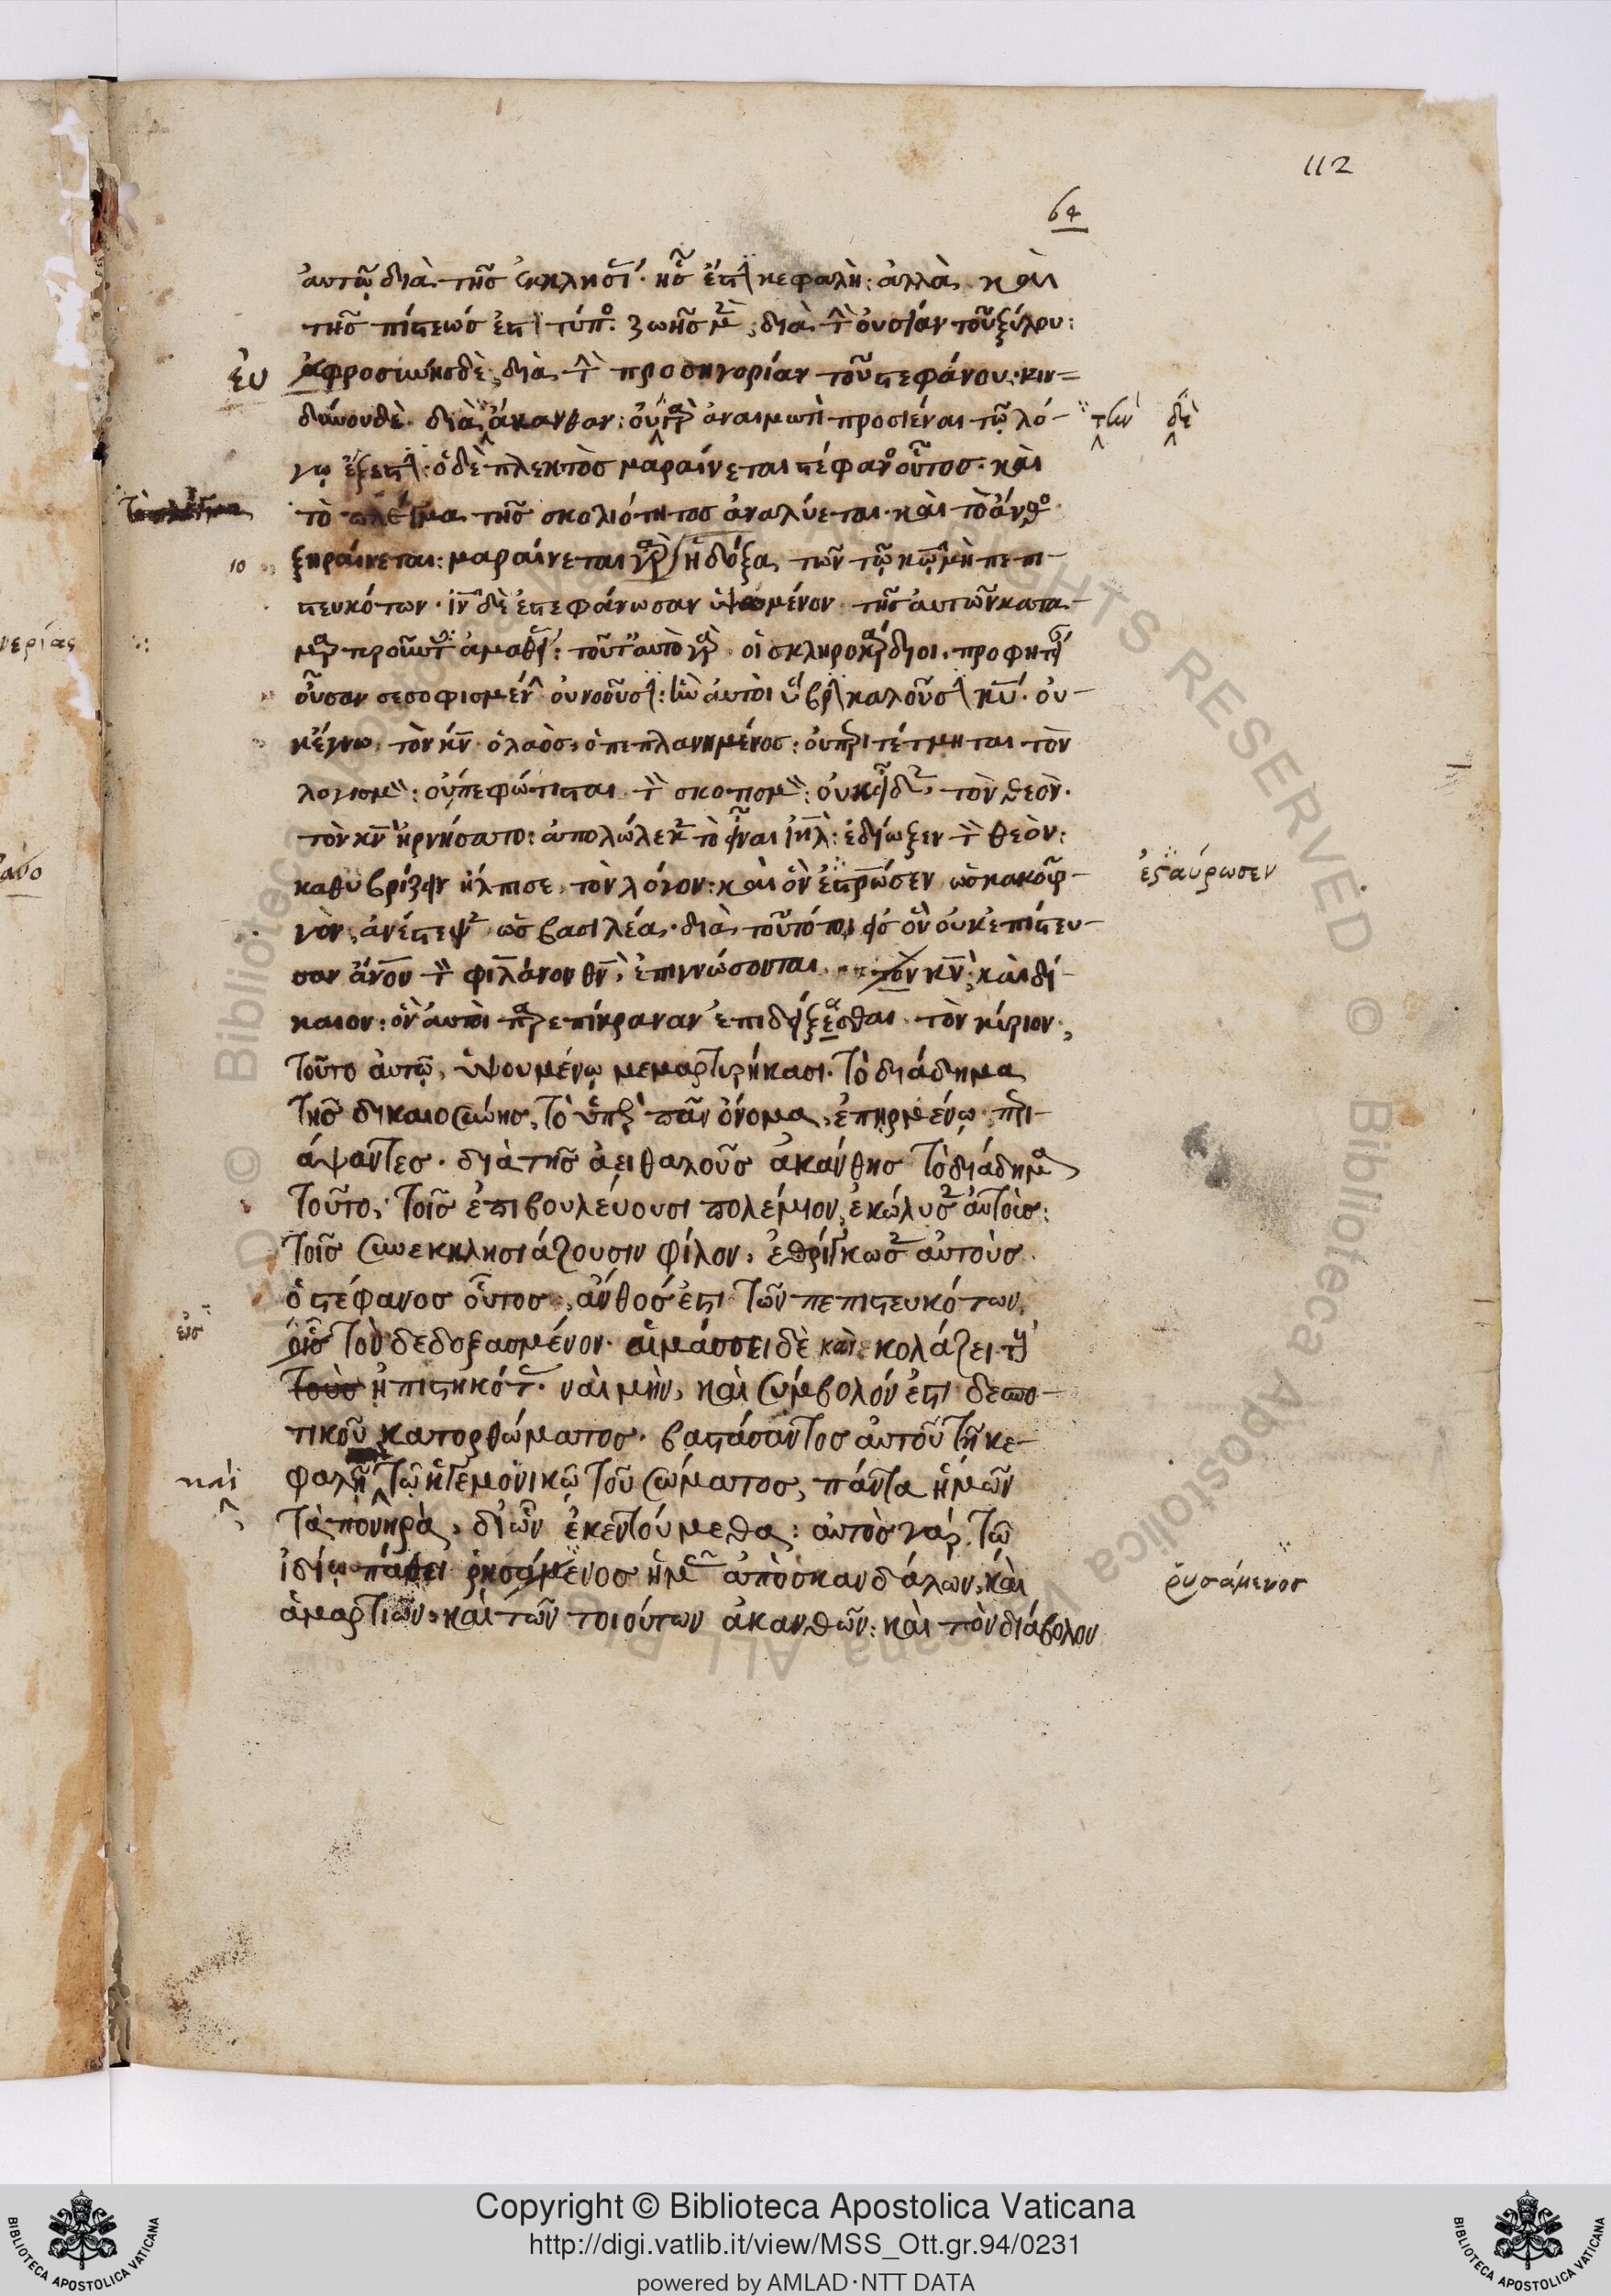 112
64
αυτῷ διὰ τῆς ἐκκλησί· ἧς ἐστὶ κεφαλή: ἀλλὰ καὶ
τῆς πίστεώς ἐστι τύπο· ζωῆς μ, διὰ τ οὐσίαν τοῦ ξύλου:
ἐυ
ἀφροσύνης δὲ, διὰ τ προσηγορίαν τοῦ στεφάνου· κιν=
δύνου δὲ· διὰ ἄκανθαν: οὐ γρ ἀναιμωτὶ προσιέναι τῷ λό-
τὴν δὲ
γῳ ἔξεστι· ὁ δὲ πλεκτὸς μαραίνεται στέφανο οὗτος· καὶ
τὸ πλέγμα τῆς σκολιότητος ἀναλύεται· καὶ τὸ ἄνθο·
10
ξηραίνεται: μαραίνεται γρ ἡ δόξα, τῶν τῷ κω μὴ πεπι-
στευκότων· ιν δὲ ἐστεφάνωσαν ὑψωμένον τῆς αὐτῶν κατα-
οὖσαν σεσοφισμέν οὐ νοοῦσι: ἣν αὐτοὶ ὕβρι καλοῦσι κυ· οὐ-
κ ἔγνω τὸν κν ὁ λαὸς, ὁ πεπλανημένος: οὐ περιτέτμηται τὸν
λογισμ: οὐ πεφώτισται τ σκοτισμ: οὐκ εἶδ, τὸν θεὸν·
τὸν κν ἠρνήσατο: ἀπολώλεκ τὸ εἶναι ιηλ: ἐδίωξεν τ θεὸν:
καθυβρίζειν ἤλπισε, τὸν λόγον: καὶ ὃν ἐστρωσεν ὡς κακοῦρ-
ἐσταύρωσεν
γον, ἀνέστεψ ὡς βασιλέα· διὰ τοῦτό τοι εἰς ὃν οὐκ ἐπίστευ-
σαν ανον τ φιλανον θν, ἐπιγνώσονται τὸν κν, καὶ δί-
καιον: ὃν αὐτοὶ παρεπίκραναν ἐπιδείξασθαι τὸν κύριον,
Τοῦτο αὐτῷ, ὑψουμένῳ μεμαρτυρήκασι· Τὸ διάδημα
Τῆς δικαιοσύνης, Τὸ ὑπὲρ πᾶν ὄνομα, ἐπηρμένῳ περι-
άψαντες· διὰ τῆς ἀειθαλοῦς ἀκάνθης Τὸ διάδημα
Τοῦτο, Τοῖς ἐπιβουλεύουσι πολέμιον, ἐκώλυσ αὐτοὶς:
Τοῖς συνεκκλησιάζουσιν φίλον, ἐθρίγκωσ αὐτοὺς
ὁ στέφανος οὗτος, ἄνθός ἐστι Τῶν πεπιστευκότων,
εἰσ
οἷς Τὸν δεδοξασμένον· αἱμάσσει δὲ καὶ κολάζει τ
Τοὺς ἠπιστηκότ· ναὶ μὴν, καὶ σύμβολόν ἐστι δεσπο-
τικοῦ κατορθώματος· βαστάσαντος αὐτοῦ Τῇ κε-
καὶ
φαλῇ Τῷ ἡγεμονικῷ Τοῦ σώματος, πάντα ἡμῶν
Τὰ πονηρὰ, δι' ὧν ἐκεντούμεθα: αὐτὸς γάρ Τῷ
ἰδίῳ πάθει ρησάμενος ἡμ ἀπὸ σκανδάλων, καὶ
ῥυσάμενος
ἁμαρτιῶν, καὶ τῶν τοιούτων ἀκανθῶν: καὶ τὸν διάβολον
Copyright © Biblioteca Apostolica Vaticana
http://digi.vatlib.it/view/MSS_Ott.gr.94/0231
powered by AMLAD·NTT DATA
BIBLIOTECA APOSTOLICA VATICANA
BIBLIOTECA APOSTOLICA VATICANA